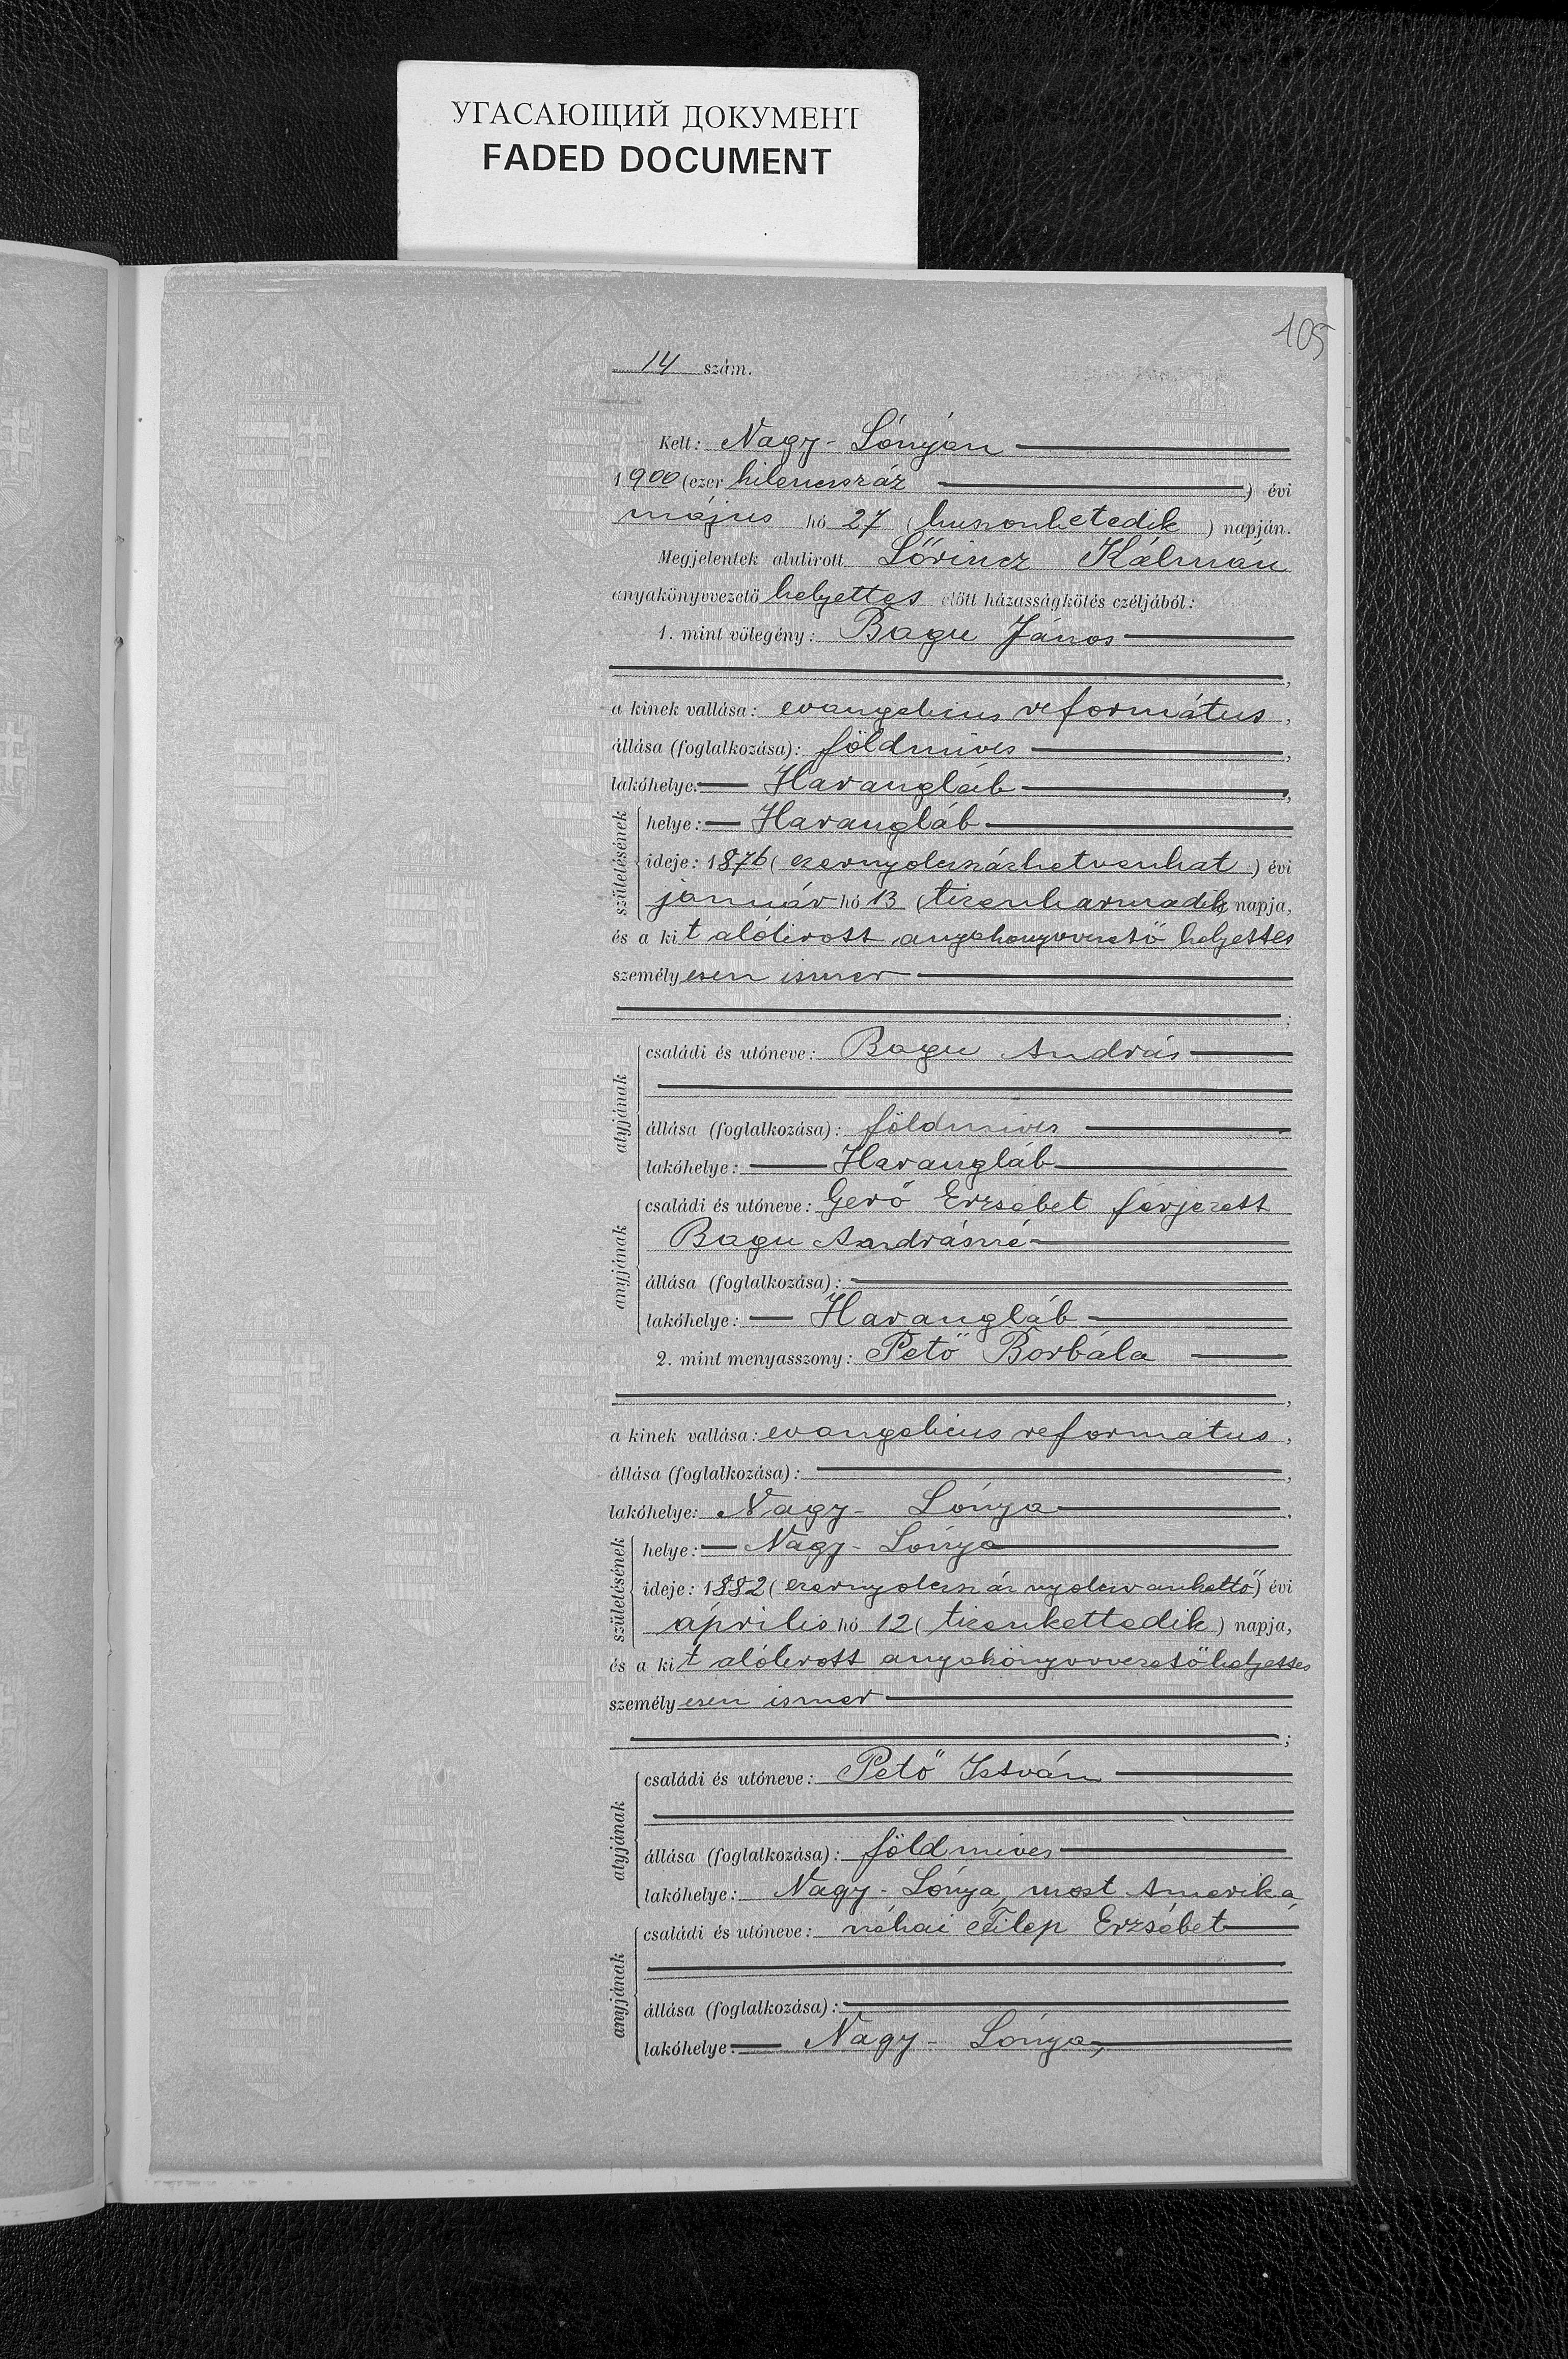 УГАСАЮЩИЙ ДОКУМЕНТ
FADED DOCUMENT
105
14 szám.
Kelt: Nagy-Lónyán
1900 (ezer kilenczszáz) évi
május hó 27 (huszonhetedik) napján.
Megjelentek alulirott Lőrincz Kálmán
anyakönyvvezető helyettes előtt házasságkötés czéljából:
1. mint vőlegény: Bagu János
,
a kinek vallása: evangelicus református,
állása (foglalkozása): földmives,
lakóhelye: Harangláb,
születésének
helye: Harangláb
ideje: 1876 (ezernyolczszázhetvenhat) évi
január hó 13 (tizenharmadik) napja,
és a kit alólirott anyakönyvvezető helyettes
személyesen ismer
;
atyjának
családi és utóneve: Bagu András
állása (foglalkozása): földmives
lakóhelye: Harangláb
anyjának
családi és utóneve: Gerő Erzsébet férjezett
Bagu Andrásné
állása (foglalkozása):
lakóhelye: Harangláb
2. mint menyasszony: Pető Borbála
,
a kinek vallása: evangelicus református,
állása (foglalkozása):,
lakóhelye: Nagy-Lónya,
születésének
helye: Nagy-Lónya
ideje: 1882 (ezernyolczszáz nyolczvankettő) évi
április hó 12 (tizenkettedik) napja,
és a kit alólirott anyakönyvvezető helyettes
személyesen ismer
;
atyjának
családi és utóneve: Pető István
állása (foglalkozása): földmives
lakóhelye: Nagy-Lónya, most Amerika,
anyjának
családi és utóneve: néhai Filep Erzsébet
állása (foglalkozása):
lakóhelye: Nagy-Lónya,